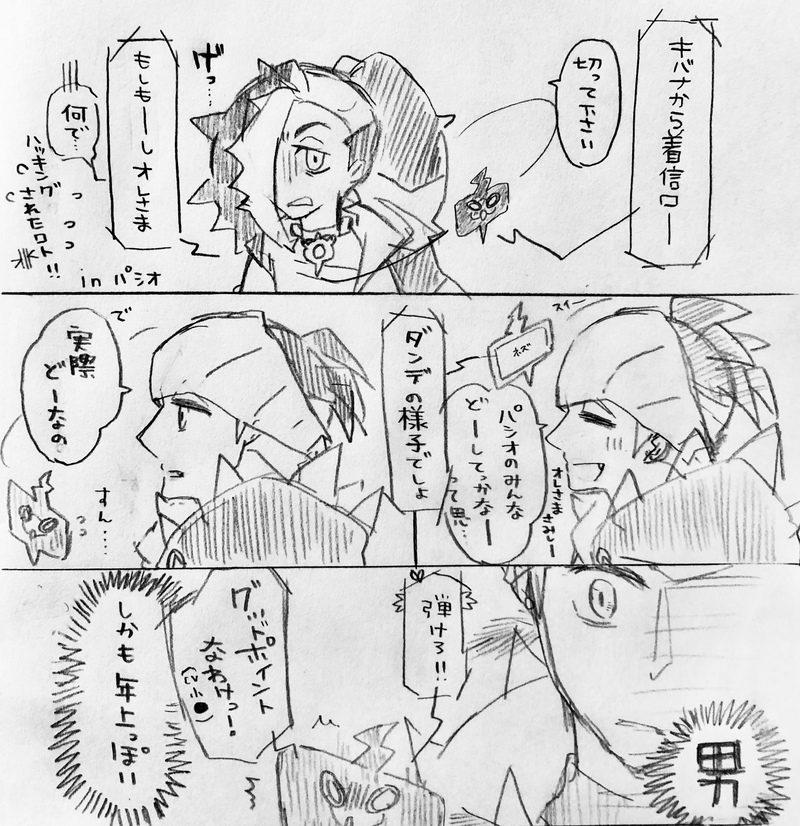 キバナから着信ロー
切って下さい
げっ…
もしもーしオレさま
何で…
ハッキング
されたロト!!
in パシオ
スイー
ホズ
パシオのみんな
どーしてっかなー
って思…
オレさま
さみしー
ダンデの様子でしょ
で
実際
どーなの
すん…
男
弾けろ!!
グッドポイント
なわけっ!
しかも年上っぽい